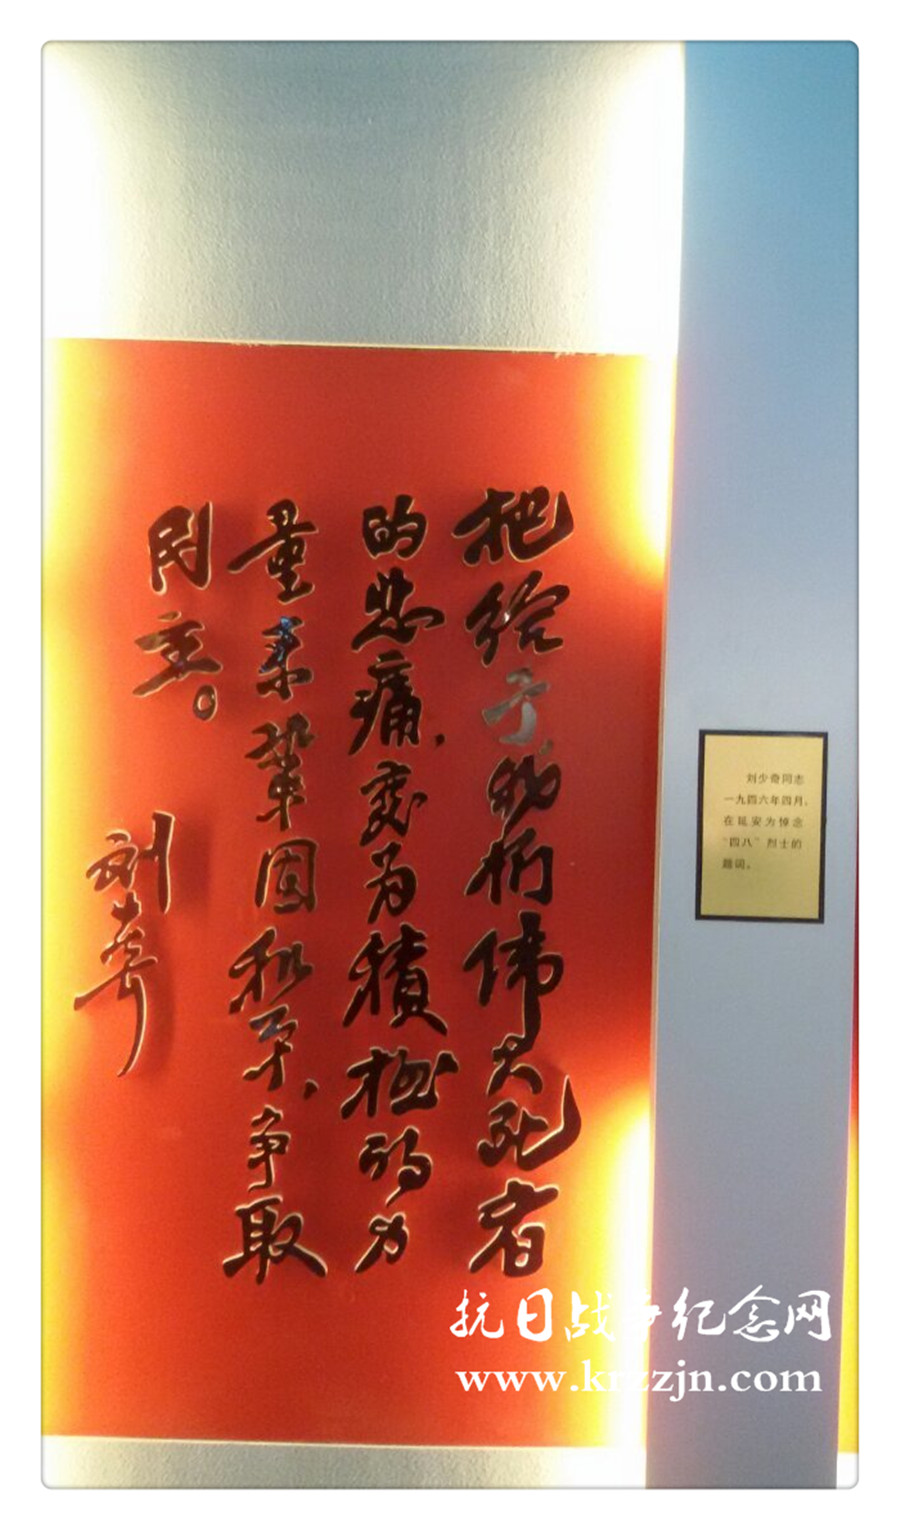 把给予我们伟大死者
的悲痛，变为积极的力
量来巩固和平、争取
民主。
刘少奇
刘少奇同志
一九四六年四月，
在延安为悼念
“四八”烈士的
题词。
抗日战争纪念网
www.krzzjn.com